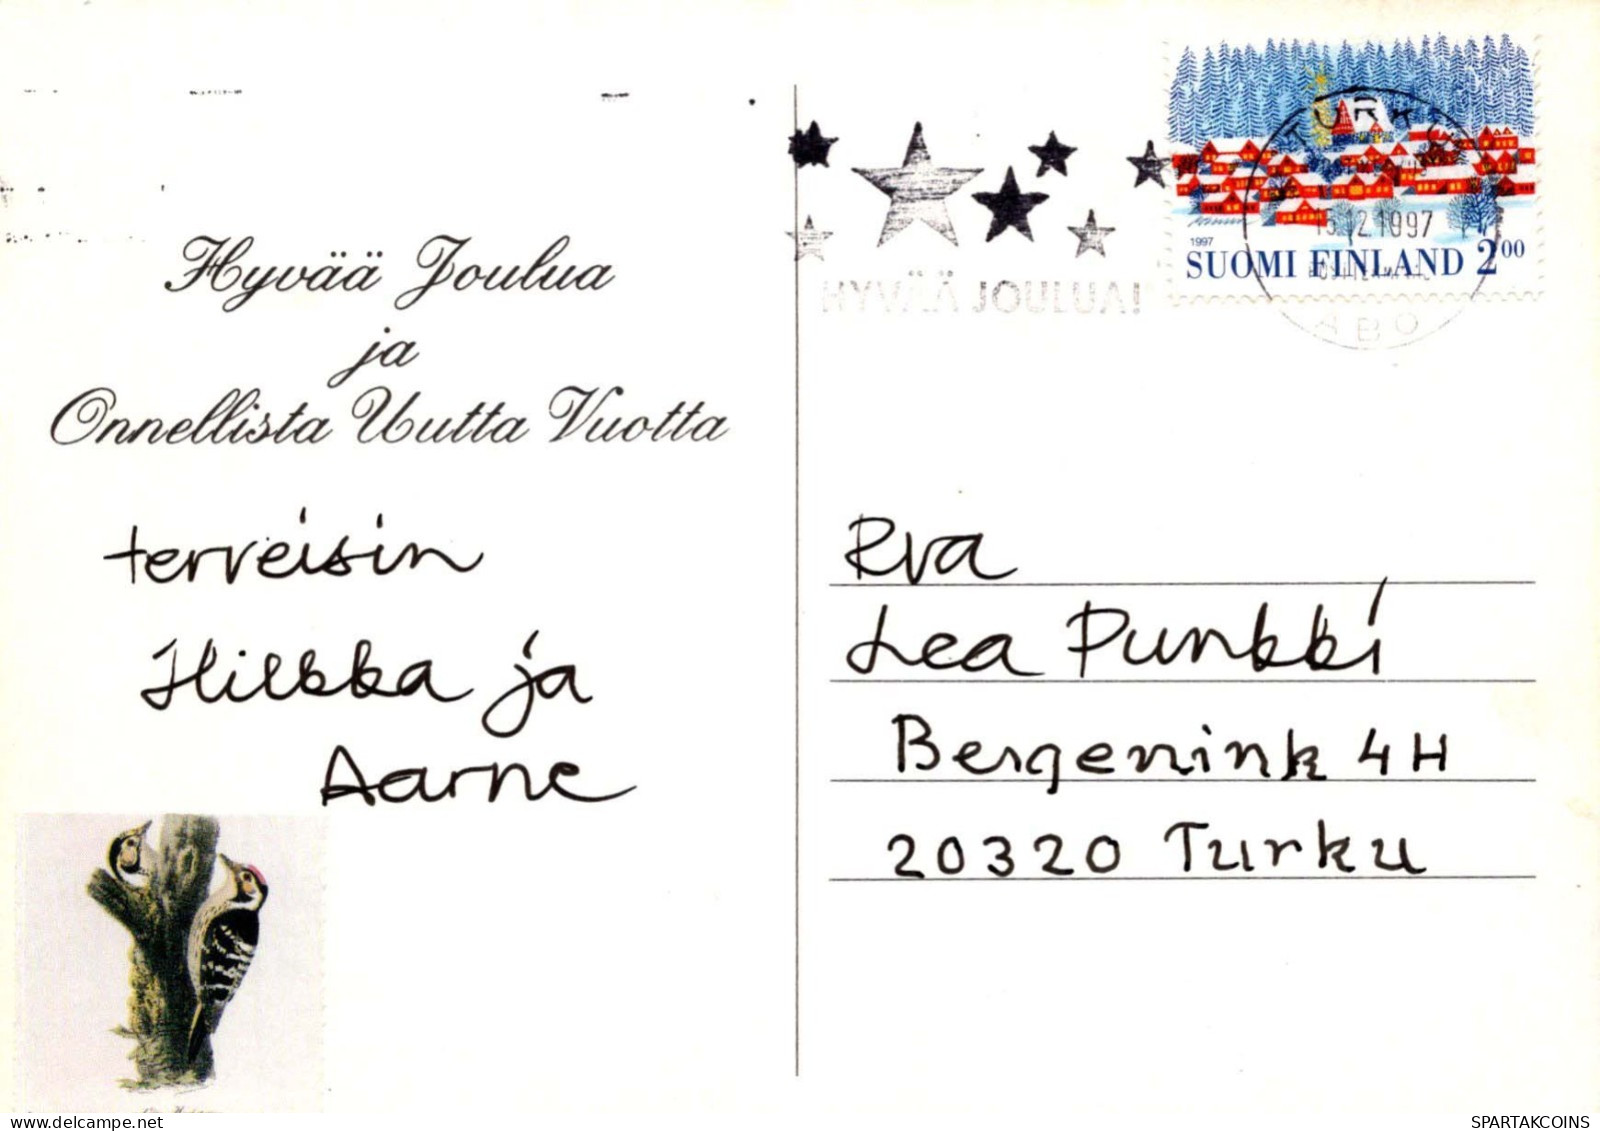 Hyvää Joulua
ja
Onnellista Uutta Vuotta
terveisin
Hilkka ja
Aarne
HYVÄÄ JOULUA!
TURKU
15.12.1997
ÅBO
1997
SUOMI FINLAND 2.00
Rva
Lea Punkki
Bergenink 4H
20320 Turku
SPARTAKCOINS